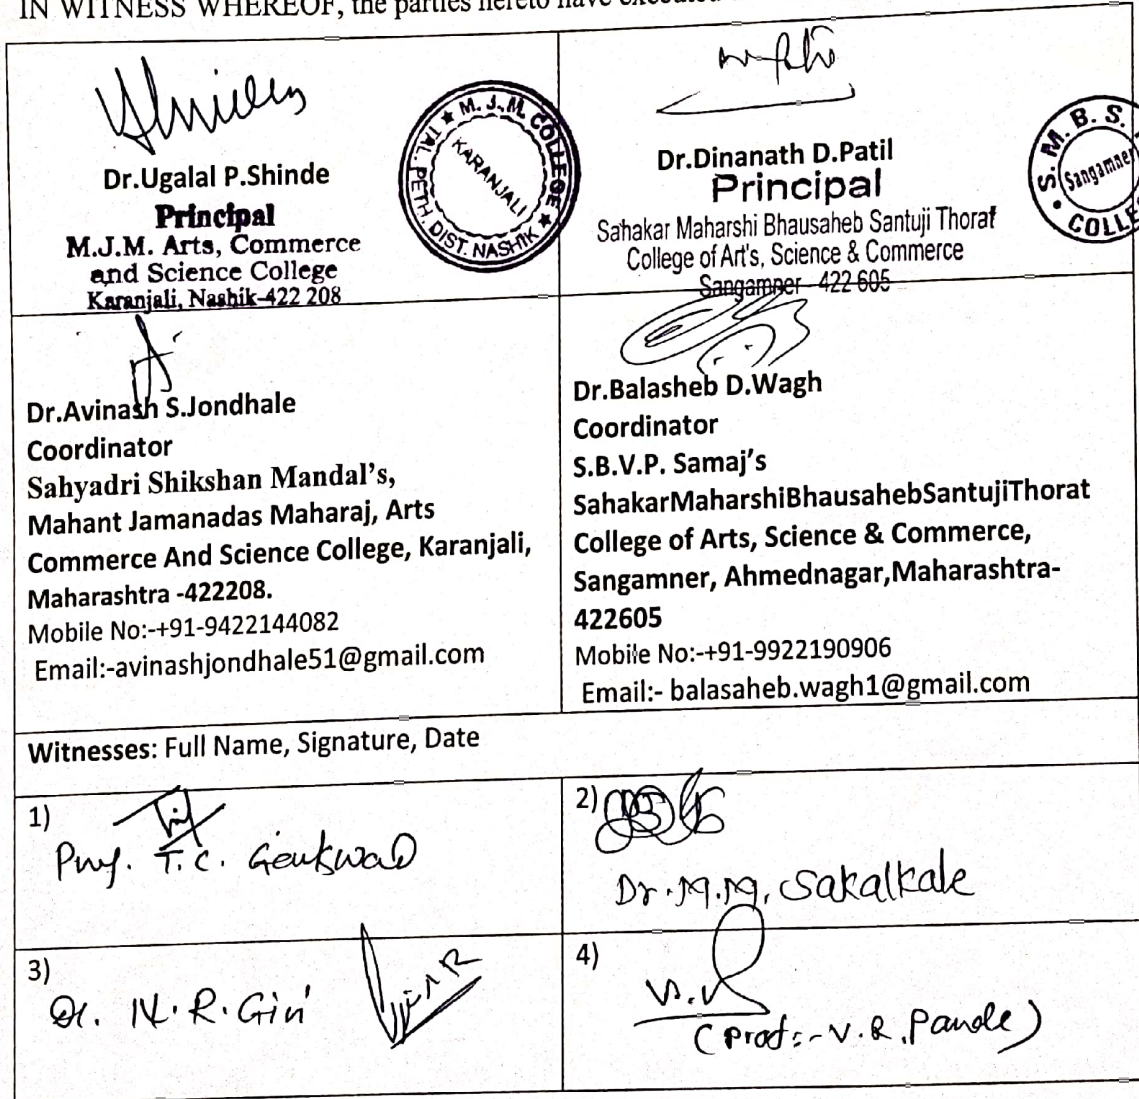 IN WITNESS WHEREOF, the parties hereto have executed
Dr.Ugalal P.Shinde
Principal
M.J.M. Arts, Commerce
and Science College
Karanjali, Nashik-422 208
★ M. J. M. COLLEGE ★
TAL. PETH. DIST. NASHIK
KARANJALI
Dr.Dinanath D.Patil
Principal
Sahakar Maharshi Bhausaheb Santuji Thorat
College of Art's, Science & Commerce
Sangamner 422 605
S. M. B. S.
Sangamner
COLLE
Dr.Avinash S.Jondhale
Coordinator
Sahyadri Shikshan Mandal's,
Mahant Jamanadas Maharaj, Arts
Commerce And Science College, Karanjali,
Maharashtra -422208.
Mobile No:-+91-9422144082
Email:-avinashjondhale51@gmail.com
Dr.Balasheb D.Wagh
Coordinator
S.B.V.P. Samaj's
SahakarMaharshiBhausahebSantujiThorat
College of Arts, Science & Commerce,
Sangamner, Ahmednagar,Maharashtra-
422605
Mobile No:-+91-9922190906
Email:- balasaheb.wagh1@gmail.com
Witnesses: Full Name, Signature, Date
1)
Prof. T.C. Gaikwad
2)
Dr. M.M. Sakalkale
3)
Dr. N.R. Giri
4)
(Prof:- V.R. Pande)